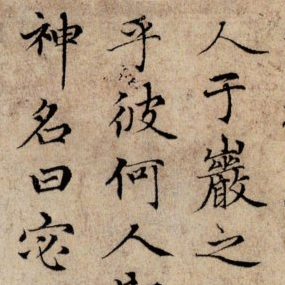 人于巖之
乎彼何人
神名曰宓